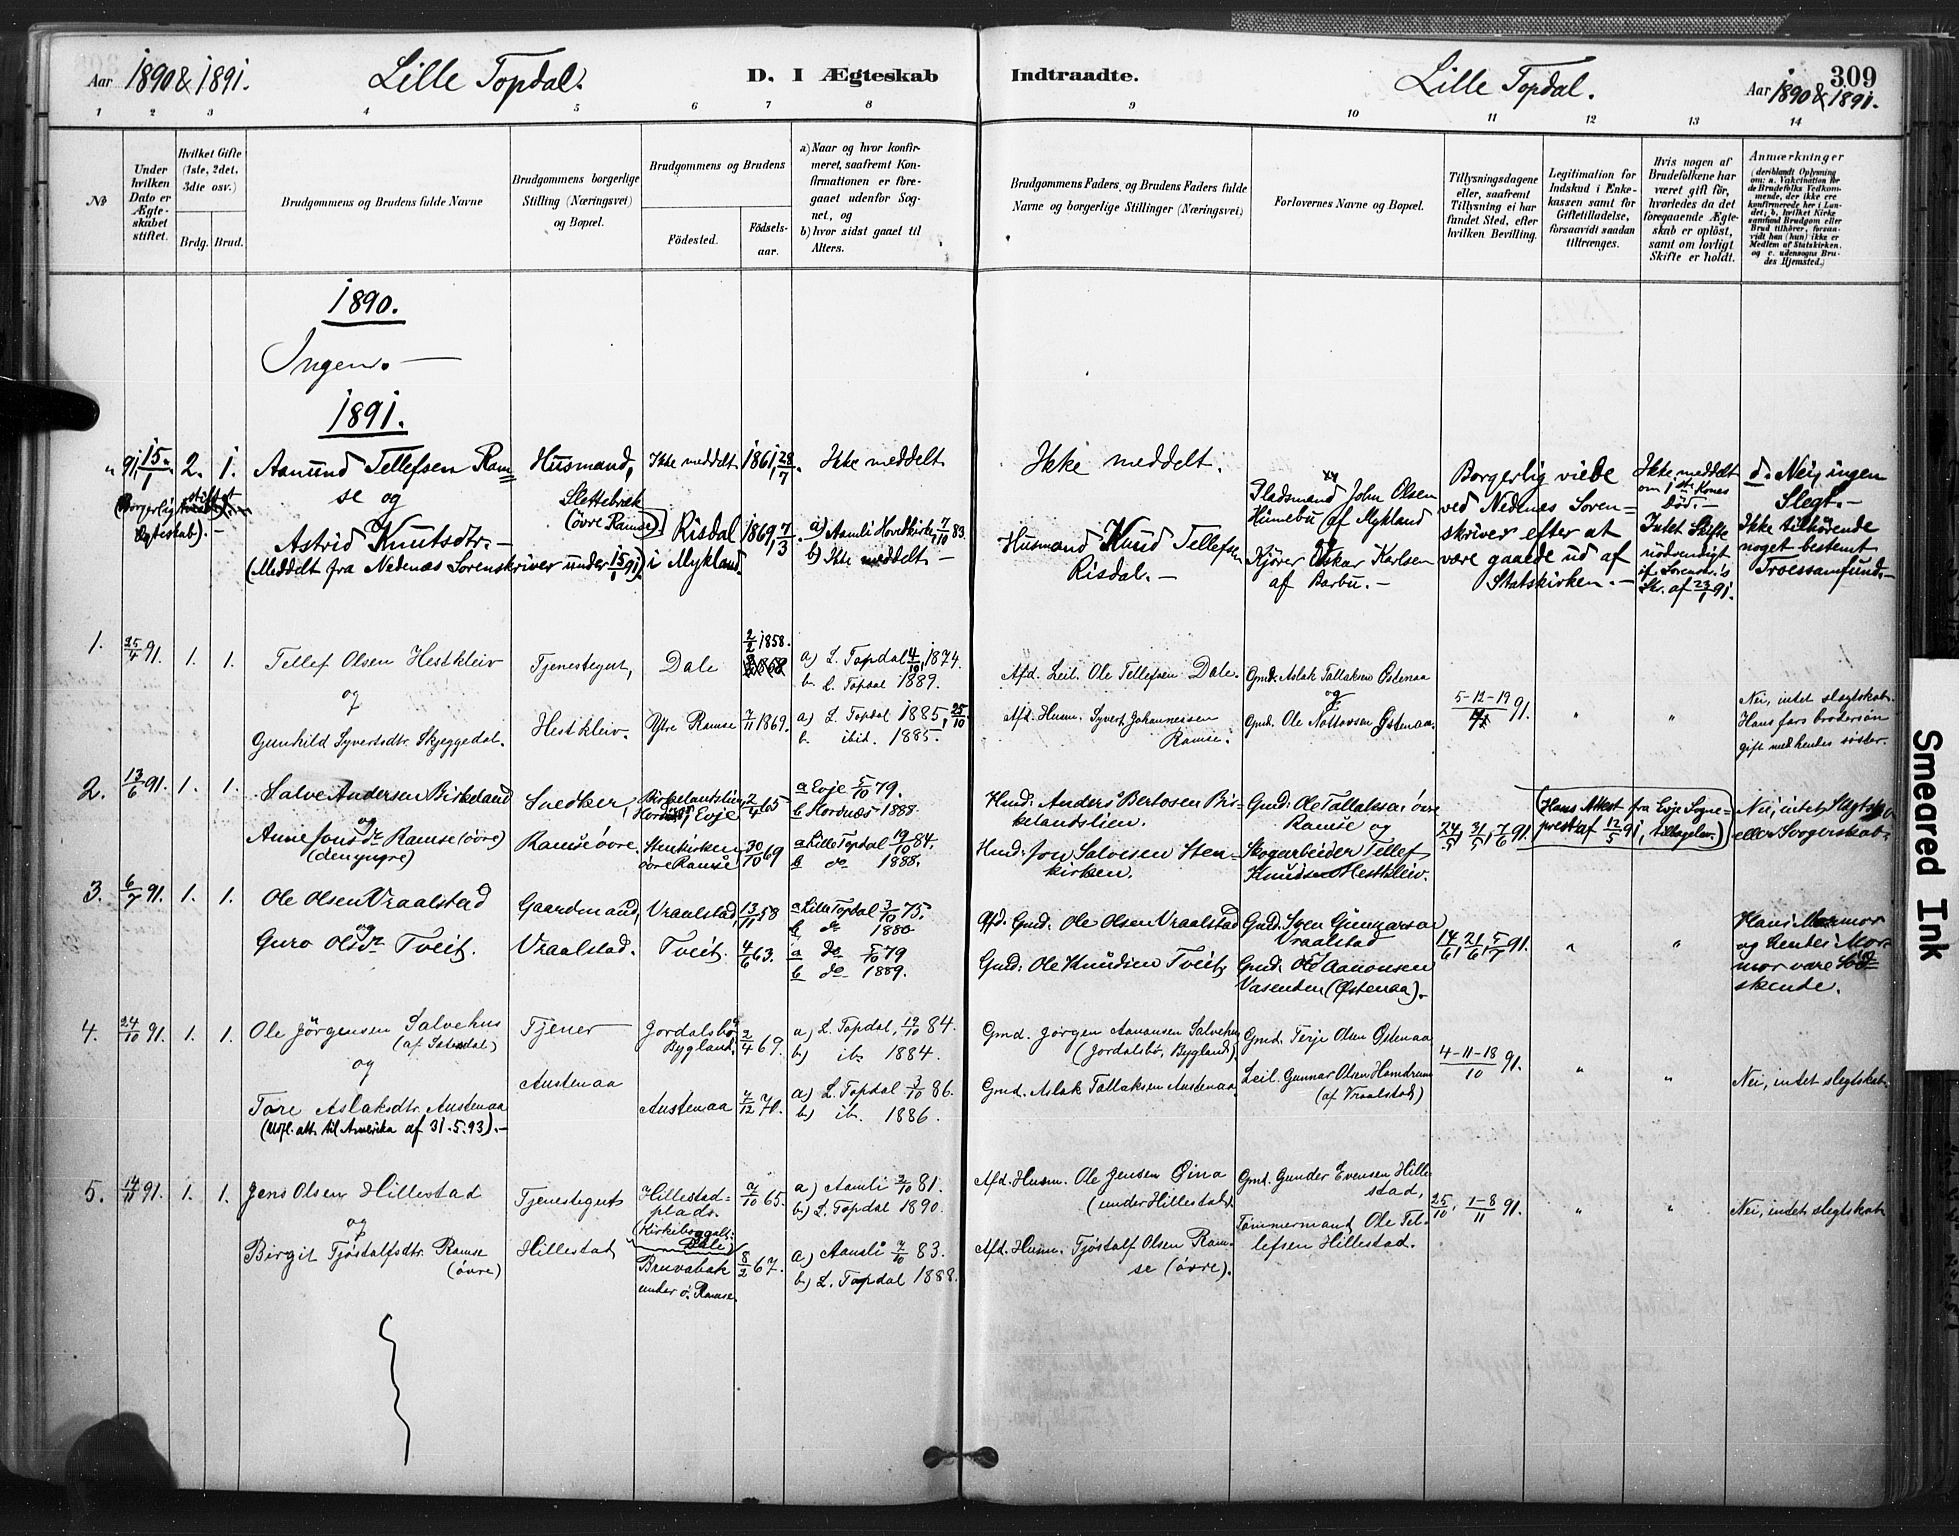 Aar 1890 & 1891. Lille Topdal. D. I Ægteskab Indtraadte. Lille Topdal. Aar 1890 & 1891. 309
1 2 3 4 5 6 7 8 9 10 11 12 13 14
№
Under hvilken Dato er Ægteskabet stiftet.
Hvilket Gifte (1ste, 2det, 3die osv.)
Brdg. Brud.
Brudgommens og Brudens fulde Navne
Brudgommens borgerlige Stilling (Næringsvei) og Bopæl.
Brudgommens og Brudens
Fødested.
Fødsels-aar.
a) Naar og hvor konfirmeret, saafremt Konfirmationen er foregaaet udenfor Sognet, og
b) hvor sidst gaaet til Alters.
Brudgommens Faders, og Brudens Faders fulde Navne og borgerlige Stillinger (Næringsvei)
Forlovernes Navne og Bopæl.
Tillysningsdagene eller, saafremt Tillysning ei har fundet Sted, efter hvilken Bevilling.
Legitimation for Indskud i Enkekassen samt for Giftetilladelse, forsaavidt saadan tiltrænges.
Hvis nogen af Brudefolkene har været gift før, hvorledes da det foregaaende Ægteskab er opløst, samt om lovligt Skifte er holdt.
Anmærkninger (deriblandt Oplysning om: a. Vakcination for de Brudefolks Vedkommende, der ikke ere konfirmerede her i Landet; b. hvilket Kirkesamfund Brudgom eller Brud tilhører, forsaavidt han (hun) ikke er Medlem af Statskirken, og c. udensogns Brudes Hjemsted.)
1890.
Ingen. —
1891.
" 91, 15/1. 2. 1. Aanund Tellefsen Ramse og
(Borgerlig stiftet Ægteskab). —
Husmand, Slettebræk (övre Ramse)
Ikke meddelt 1861, 28/7. Ikke meddelt
Ikke meddelt.
Pladsmand John Olsen Himebu af Mykland og
Borgerlig viede ved Nedenæs Sorenskriver efter at være gaaede ud af Statskirken. —
Ikke meddelt om 1ste Kones Död. —
Intet Skifte nödvendigt if. Sorenskr.'s Skr. af 23/1 91.
d. Nei, ingen Slegt. —
Ikke tilhörende noget bestemt Troessamfund. —
Astrid Knutsdtr. —
(Meddelt fra Nedenæs Sorenskriver under 15/1 91).
Risdal i Mykland 1869, 7/3.
a) Aamli Hovdkirke, 7/10 83.
b) Ikke meddelt —
Husmand Knud Tellefsen Risdal. —
Kjörer Oskar Karlsen af Barbu. —
1. 25/4 91. 1. 1. Tellef Olsen Hestkleiv Tjenestegut, Dale 2/2 1858.
a) L. Topdal 4/10, 1874.
b. L. Topdal 1889.
Afd. Leil. Ole Tellefsen Dale.
Gmd. Aslak Tallaksen Østenaa
og
Gunhild Syvertsdtr. Skjeggedal.
Hestkleiv. Ytre Ramse 7/11 1869.
a) L. Topdal 1885, 25/10
b. ibid. 1885.
Afd. Husm. Syvert Johannessen Ramse.
og
Gmd. Ole Nottovsen Østenaa.
5-12-19/4 91. " "
Nei, intet slegtskab. Hans fars brodersøn gift med hendes søster.
2. 13/6 91. 1. 1. Salve Andersen Birkeland Snedker, Birkelandslien, Evje 2/4 65
a Evje 5/10 79.
b Hordnæs 1888.
Husmd: Anders Bertosen Birkelandslien.
Gmd: Ole Tallaksen övre Ramse og
og
Anne Jonsdr Ramse (övre)
(den yngre)
Ramse övre. Stenkirken övre Ramse 30/10 69
a Lille Topdal 19/10 84.
b do 1888.
Husmd: Jon Salvesen Stenkirken.
Skogarbeider Tellef Knudsen Hestkleiv.
24/5, 31/5, 7/6 91
(Hans Attest fra Evje Sogneprest af 12/5 91, tilbagelev.)
Nei, intet Slegtskab eller Svogerskab.
3. 6/7 91. 1. 1. Ole Olsen Vraalstad Gaardmand, Vraalstad, 13/11 58
a Lille Topdal 3/10 75.
b do 1880
Afd. Gmd. Ole Olsen Vraalstad
Gmd. Sven Gunnarsen Vraalstad
og
Guro Olsdr Tveit. Vraalstad. Tveit. 4/6 63.
a do 5/10 79
b do 1889.
Gmd: Ole Knudsen Tveit,
Gmd. Ole Aanonsen Vasenden (Østenaa).
14/6, 21/6, 5/7 91. " "
Hans Mormor og hendes Mormor vare Södskende.
4. 24/10 91. 1. 1. Ole Jörgensen Salvehus
(af Sætesdal)
Tjener Jordalsbø Bygland, 2/4 69.
a) L. Topdal, 19/10 84.
b) ib. 1884.
Gmd. Jörgen Aanonsen Salvehus (Jordalsbø, Bygland).
Gmd. Terje Olsen Østenaa
og
Tore Aslaksdtr. Austenaa
(Udfl. att. til Amerika af 31.5.93). —
Austenaa Austenaa 7/12 70.
a) L. Topdal 3/10 86.
b) ib. 1886.
Gmd. Aslak Tallaksen Austenaa.
Leil. Gunnar Olsen Hamdrum
(af Vraalstad)
4-11-18/10 91. " "
Nei, intet slegtskab.
5. 14/11 91. 1. 1. Jens Olsen Hillestad Tjenestegut, Hillestad-plads. 7/10 65.
a) Aamli 2/10 81.
b) L. Topdal 1890.
Afd. Husm. Ole Jensen Øina
(under Hillestad).
Gmd. Gunder Evensen Hillestad,
og
Birgit Tjöstolfsdtr. Ramse
(övre)
Hillestad Bruvabak under ö. Ramse. 8/2 67.
a) Aamli 7/10 83.
b) L. Topdal 1888.
Afd. Husm. Tjöstolf Olsen Ramse (övre).
Tömmermand Ole Tellefsen Hillestad.
25/10, 1-8/11 91. " "
Nei, intet slegtskab
Smeared Ink